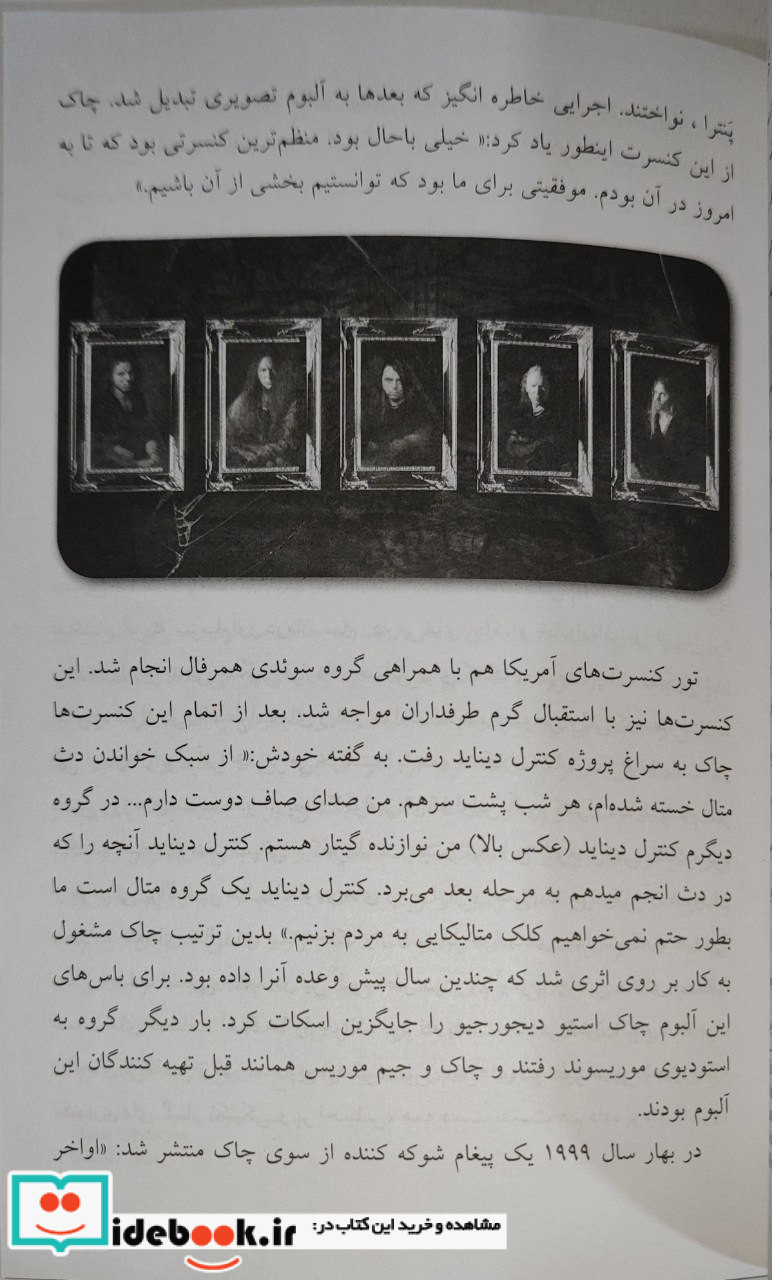 پَنترا ، نواختند. اجرایی خاطره انگیز که بعدها به آلبوم تصویری تبدیل شد. چاک
از این کنسرت اینطور یاد کرد:« خیلی باحال بود. منظم‌ترین کنسرتی بود که تا به
امروز در آن بودم. موفقیتی برای ما بود که توانستیم بخشی از آن باشیم.»
تور کنسرت‌های آمریکا هم با همراهی گروه سوئدی همرفال انجام شد. این
کنسرت‌ها نیز با استقبال گرم طرفداران مواجه شد. بعد از اتمام این کنسرت‌ها
چاک به سراغ پروژه کنترل دیناید رفت. به گفته خودش:« از سبک خواندن دث
متال خسته شده‌ام، هر شب پشت سرهم. من صدای صاف دوست دارم... در گروه
دیگرم کنترل دیناید (عکس بالا) من نوازنده گیتار هستم. کنترل دیناید آنچه را که
در دث انجم میدهم به مرحله بعد می‌برد. کنترل دیناید یک گروه متال است ما
بطور حتم نمی‌خواهیم کلک متالیکایی به مردم بزنیم.» بدین ترتیب چاک مشغول
به کار بر روی اثری شد که چندین سال پیش وعده آنرا داده بود. برای باس‌های
این آلبوم چاک استیو دیجورجیو را جایگزین اسکات کرد. بار دیگر گروه به
استودیوی موریسوند رفتند و چاک و جیم موریس همانند قبل تهیه کنندگان این
آلبوم بودند.
در بهار سال ۱۹۹۹ یک پیغام شوکه کننده از سوی چاک منتشر شد: «اواخر
مشاهده و خرید این کتاب در:
idebook.ir